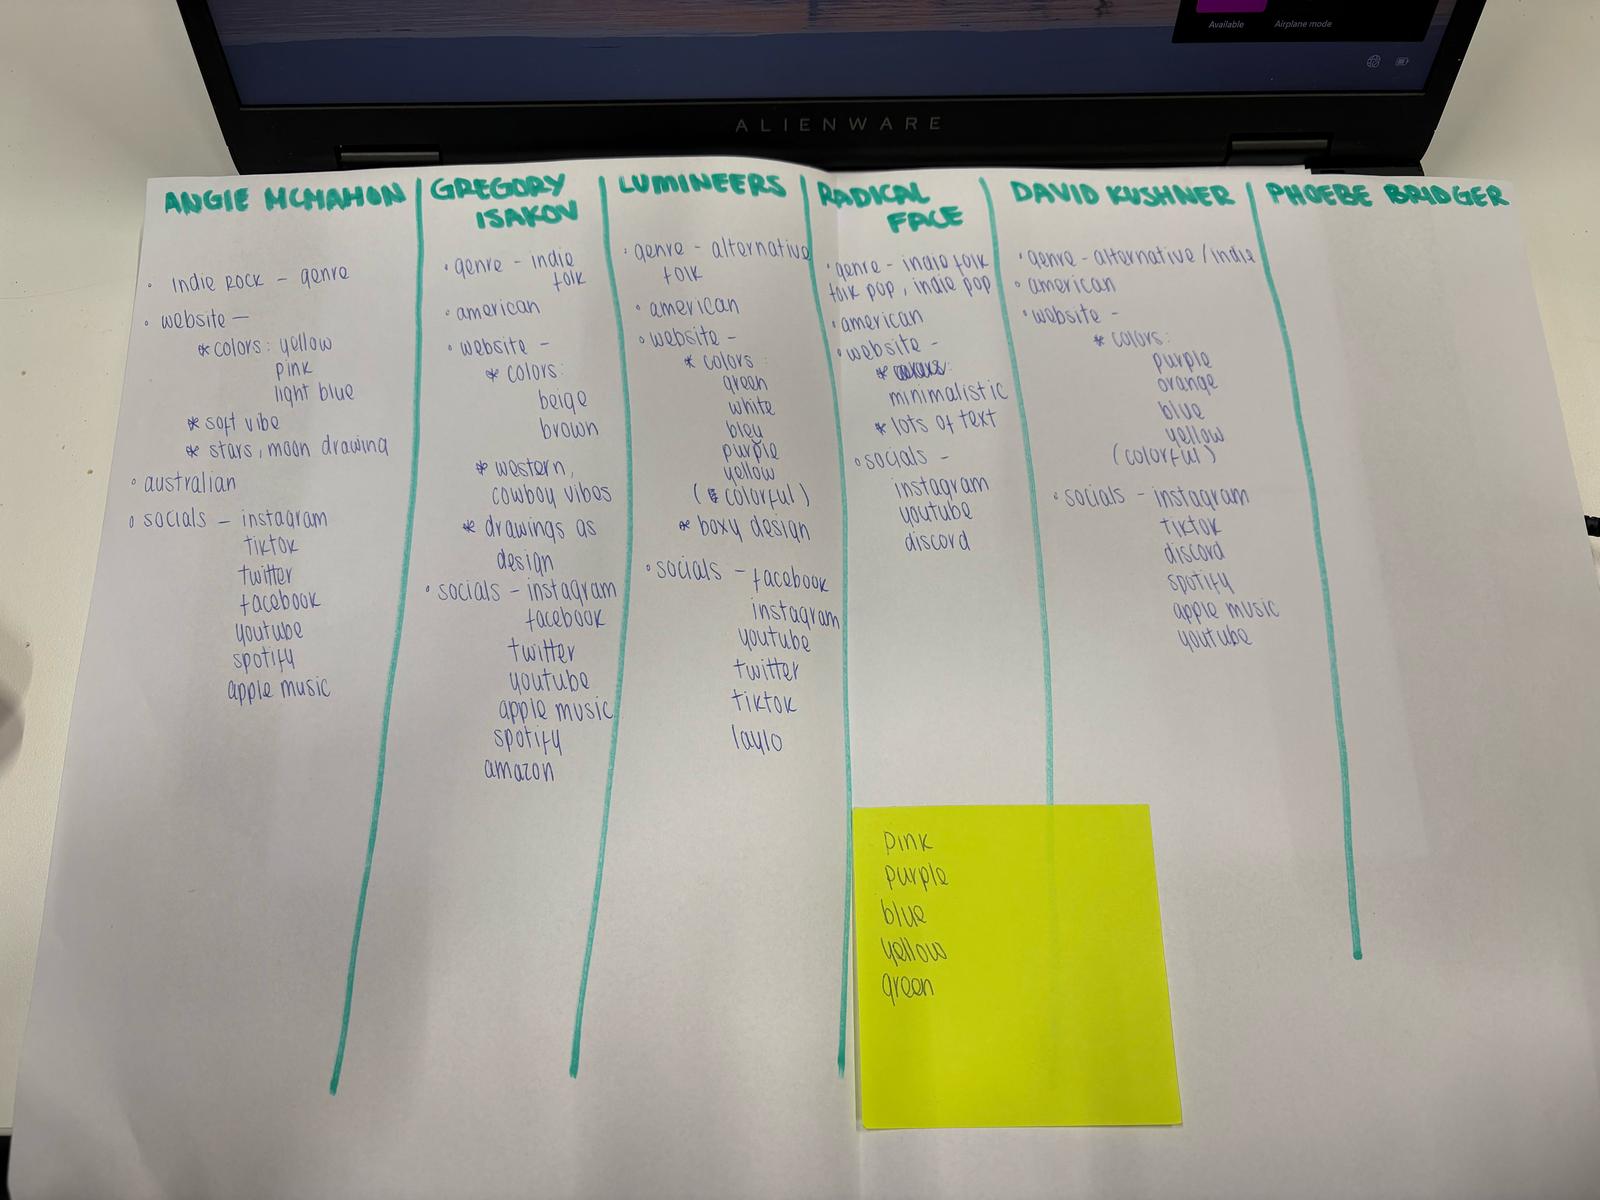 Available
Airplane mode
ALIENWARE
ANGIE MCMAHON
· Indie Rock – genre
· website –
* colors: yellow
pink
light blue
* soft vibe
* stars, moon drawing
· australian
· socials – instagram
tiktok
twitter
facebook
youtube
spotify
apple music
GREGORY
ISAKOV
· genre – indie
folk
· american
· website –
* colors:
beige
brown
* western,
cowboy vibes
* drawings as
design
· socials – instagram
facebook
twitter
youtube
apple music
spotify
amazon
LUMINEERS
· genre – alternative
folk
· american
· website –
* colors:
green
white
bleu
purple
yellow
(colorful)
* boxy design
· socials – facebook
instagram
youtube
twitter
tiktok
laylo
RADICAL
FACE
· genre – indie folk
folk pop, indie pop
· american
· website –
* colors:
minimalistic
* lots of text
· socials –
instagram
youtube
discord
DAVID KUSHNER
· genre – alternative / indie
· american
· website –
* colors:
purple
orange
blue
yellow
(colorful)
· socials – instagram
tiktok
discord
spotify
apple music
youtube
PHOEBE BRIDGER
pink
purple
blue
yellow
green